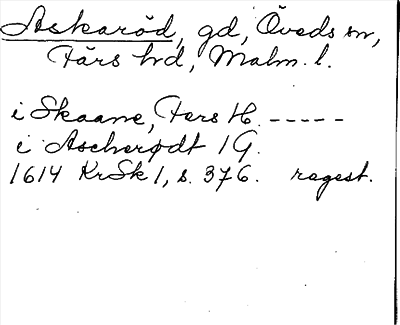 Askaröd, gd, Öveds sn,
Färs hd, Malm. l.
i Skaane, Fers H. -----
i Ascherødt 1 G.
1614 KrSk 1, s. 376. regest.